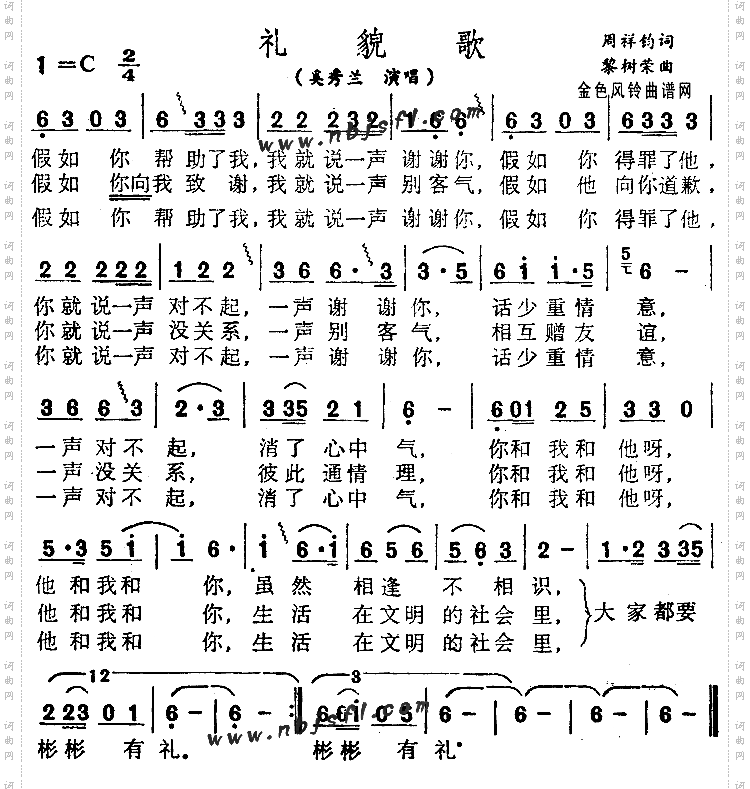 礼貌歌
1=C 2/4
周祥钧词
(奚秀兰 演唱)
黎树荣曲
金色风铃曲谱网
6 3 0 3 | 6 3 3 3 | 2 2 2 3 2 | 1 6 6 | 6 3 0 3 | 6 3 3 3 |
www.nbfsfl.com
假如 你 帮助了我,我就说一声谢谢你,假如 你 得罪了他,
假如 你向我致 谢,我就说一声别客气,假如 他 向你道歉,
假如 你 帮助了我,我就说一声谢谢你,假如 你 得罪了他,
2 2 2 2 2 | 1 2 2 | 3 6 6 · 3 | 3 · 5 | 6 i i · 5 | 5 6 - |
你就说一声 对不起,一声谢 谢你, 话少重情 意,
你就说一声 没关系,一声别 客气, 相互赠友 谊,
你就说一声 对不起,一声谢 谢你, 话少重情 意,
3 6 6 3 | 2 · 3 | 3 3 5 2 1 | 6 - | 6 0 1 2 5 | 3 3 0 |
一声对不 起, 消了心中 气, 你和我和 他呀,
一声没关 系, 彼此通情 理, 你和我和 他呀,
一声对不 起, 消了心中 气, 你和我和 他呀,
5 · 3 5 i | i 6 · | i 6 · i | 6 5 6 | 5 6 3 | 2 - | 1 · 2 3 3 5 |
他 和我和 你,虽 然 相逢 不 相 识,
他 和我和 你,生 活 在文明 的社会 里, 大家都要
他 和我和 你,生 活 在文明 的社会 里,
12 3
2 2 3 0 1 | 6 - | 6 - :‖ 6 6 i 0 5 | 6 - | 6 - | 6 - ‖
www.nbfsfl.com
彬彬 有 礼. 彬彬 有 礼.